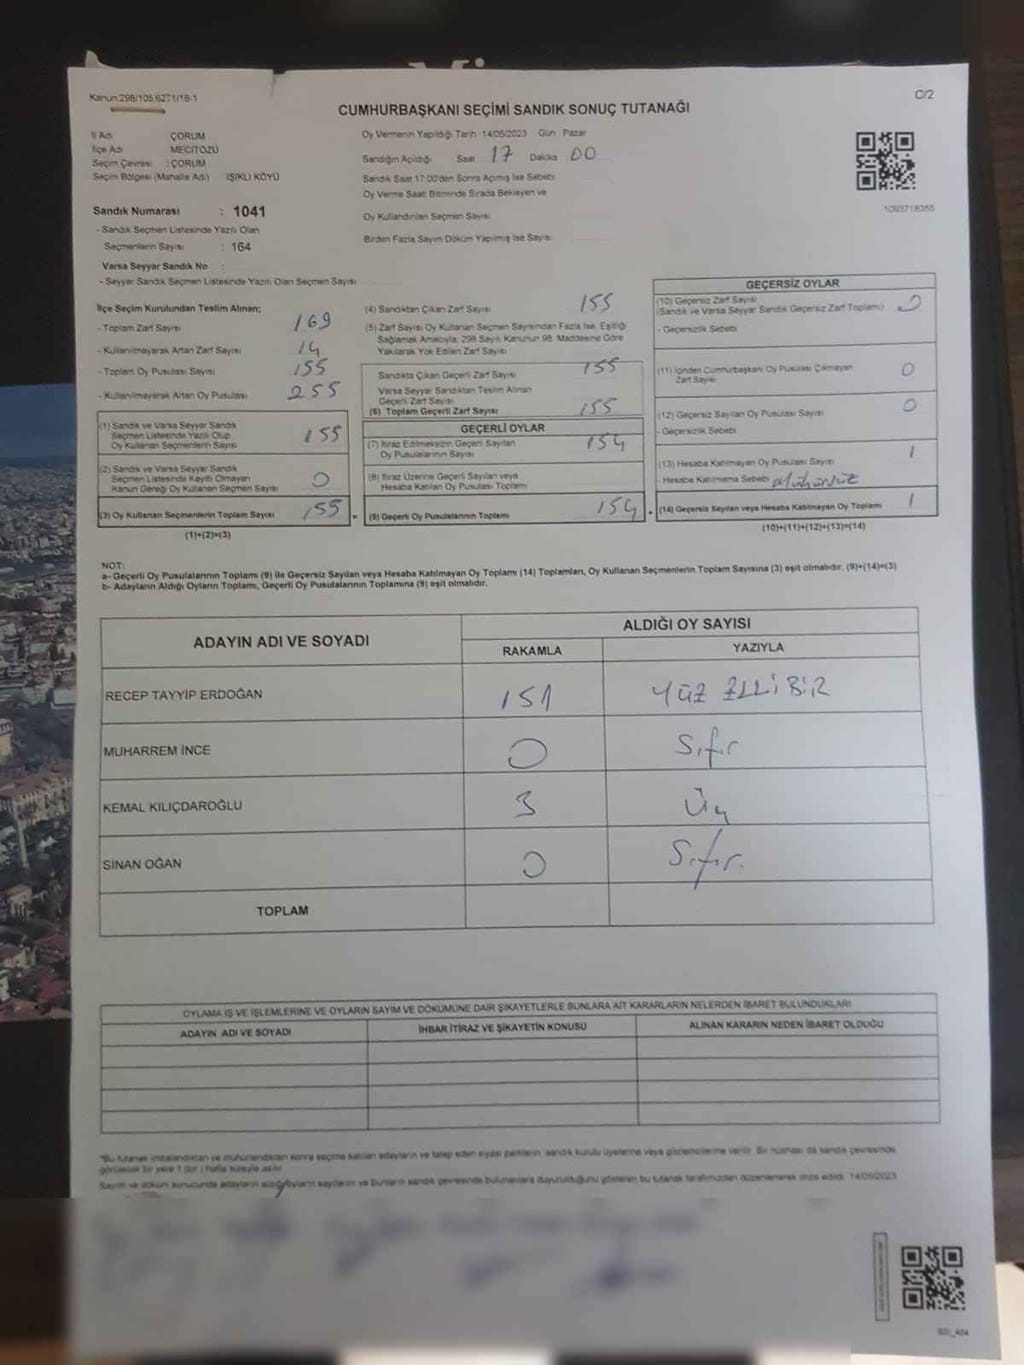 Kanun:298/105,6271/18-1
C/2
CUMHURBAŞKANI SEÇİMİ SANDIK SONUÇ TUTANAĞI
İl Adı ÇORUM
İlçe Adı MECİTÖZÜ
Seçim Çevresi : ÇORUM
Seçim Bölgesi (Mahalle Adı) IŞIKLI KÖYÜ
Oy Vermenin Yapıldığı Tarih 14/05/2023 Gün Pazar
Sandığın Açıldığı Saat 17 Dakika 00
Sandık Saat 17:00'den Sonra Açılmış İse Sebebi
Oy Verme Saati Bitiminde Sırada Bekleyen ve
Oy Kullandırılan Seçmen Sayısı
Birden Fazla Sayım Döküm Yapılmış İse Sayısı
1093718355
Sandık Numarası : 1041
- Sandık Seçmen Listesinde Yazılı Olan
Seçmenlerin Sayısı : 164
Varsa Seyyar Sandık No :
- Seyyar Sandık Seçmen Listesinde Yazılı Olan Seçmen Sayısı
İlçe Seçim Kurulundan Teslim Alınan;
- Toplam Zarf Sayısı 169
- Kullanılmayarak Artan Zarf Sayısı 14
- Toplam Oy Pusulası Sayısı 155
- Kullanılmayarak Artan Oy Pusulası 255
(1) Sandık ve Varsa Seyyar Sandık
Seçmen Listesinde Yazılı Olup
Oy Kullanan Seçmenlerin Sayısı 155
(2) Sandık ve Varsa Seyyar Sandık
Seçmen Listesinde Kayıtlı Olmayan
Kanun Gereği Oy Kullanan Seçmen Sayısı 0
(3) Oy Kullanan Seçmenlerin Toplam Sayısı 155
(1)+(2)=(3)
(4) Sandıktan Çıkan Zarf Sayısı 155
(5) Zarf Sayısı Oy Kullanan Seçmen Sayısından Fazla İse, Eşitliği
Sağlamak Amacıyla; 298 Sayılı Kanunun 98. Maddesine Göre
Yakılarak Yok Edilen Zarf Sayısı
Sandıkta Çıkan Geçerli Zarf Sayısı 155
Varsa Seyyar Sandıktan Teslim Alınan
Geçerli Zarf Sayısı
(6) Toplam Geçerli Zarf Sayısı 155
GEÇERLİ OYLAR
(7) İtiraz Edilmeksizin Geçerli Sayılan
Oy Pusulalarının Sayısı 154
(8) İtiraz Üzerine Geçerli Sayılan veya
Hesaba Katılan Oy Pusulası Toplamı
(9) Geçerli Oy Pusulalarının Toplamı 154
GEÇERSİZ OYLAR
(10) Geçersiz Zarf Sayısı
(Sandık ve Varsa Seyyar Sandık Geçersiz Zarf Toplamı) 0
- Geçersizlik Sebebi
(11) İçinden Cumhurbaşkanı Oy Pusulası Çıkmayan
Zarf Sayısı 0
(12) Geçersiz Sayılan Oy Pusulası Sayısı 0
- Geçersizlik Sebebi
(13) Hesaba Katılmayan Oy Pusulası Sayısı 1
- Hesaba Katılmama Sebebi Mühürsüz
(14) Geçersiz Sayılan veya Hesaba Katılmayan Oy Toplamı 1
(10)+(11)+(12)+(13)=(14)
NOT:
a- Geçerli Oy Pusulalarının Toplamı (9) ile Geçersiz Sayılan veya Hesaba Katılmayan Oy Toplamı (14) Toplamları, Oy Kullanan Seçmenlerin Toplam Sayısına (3) eşit olmalıdır. (9)+(14)=(3)
b- Adayların Aldığı Oyların Toplamı, Geçerli Oy Pusulalarının Toplamına (9) eşit olmalıdır.
ADAYIN ADI VE SOYADI
ALDIĞI OY SAYISI
RAKAMLA YAZIYLA
RECEP TAYYİP ERDOĞAN 151 YÜZ ELLİ BİR
MUHARREM İNCE 0 Sıfır
KEMAL KILIÇDAROĞLU 3 Üç
SİNAN OĞAN 0 Sıfır.
TOPLAM
OYLAMA İŞ VE İŞLEMLERİNE VE OYLARIN SAYIM VE DÖKÜMÜNE DAİR ŞİKAYETLERLE BUNLARA AİT KARARLARIN NELERDEN İBARET BULUNDUKLARI
ADAYIN ADI VE SOYADI İHBAR İTİRAZ VE ŞİKAYETİN KONUSU ALINAN KARARIN NEDEN İBARET OLDUĞU
*Bu tutanak imzalandıktan ve mühürlendikten sonra seçime katılan adayların ve talep eden siyasi partilerin sandık kurulu üyelerine veya gözlemcilerine verilir. Bir nüshası da sandık çevresinde
görülecek bir yere 1 (bir) hafta süreyle asılır.
Sayım ve döküm sonucunda adayların aldığı oyların sayılarını ve bunların sandık çevresinde bulunanlara duyurulduğunu gösteren bu tutanak tarafımızdan düzenlenerek imza edildi. 14/05/2023